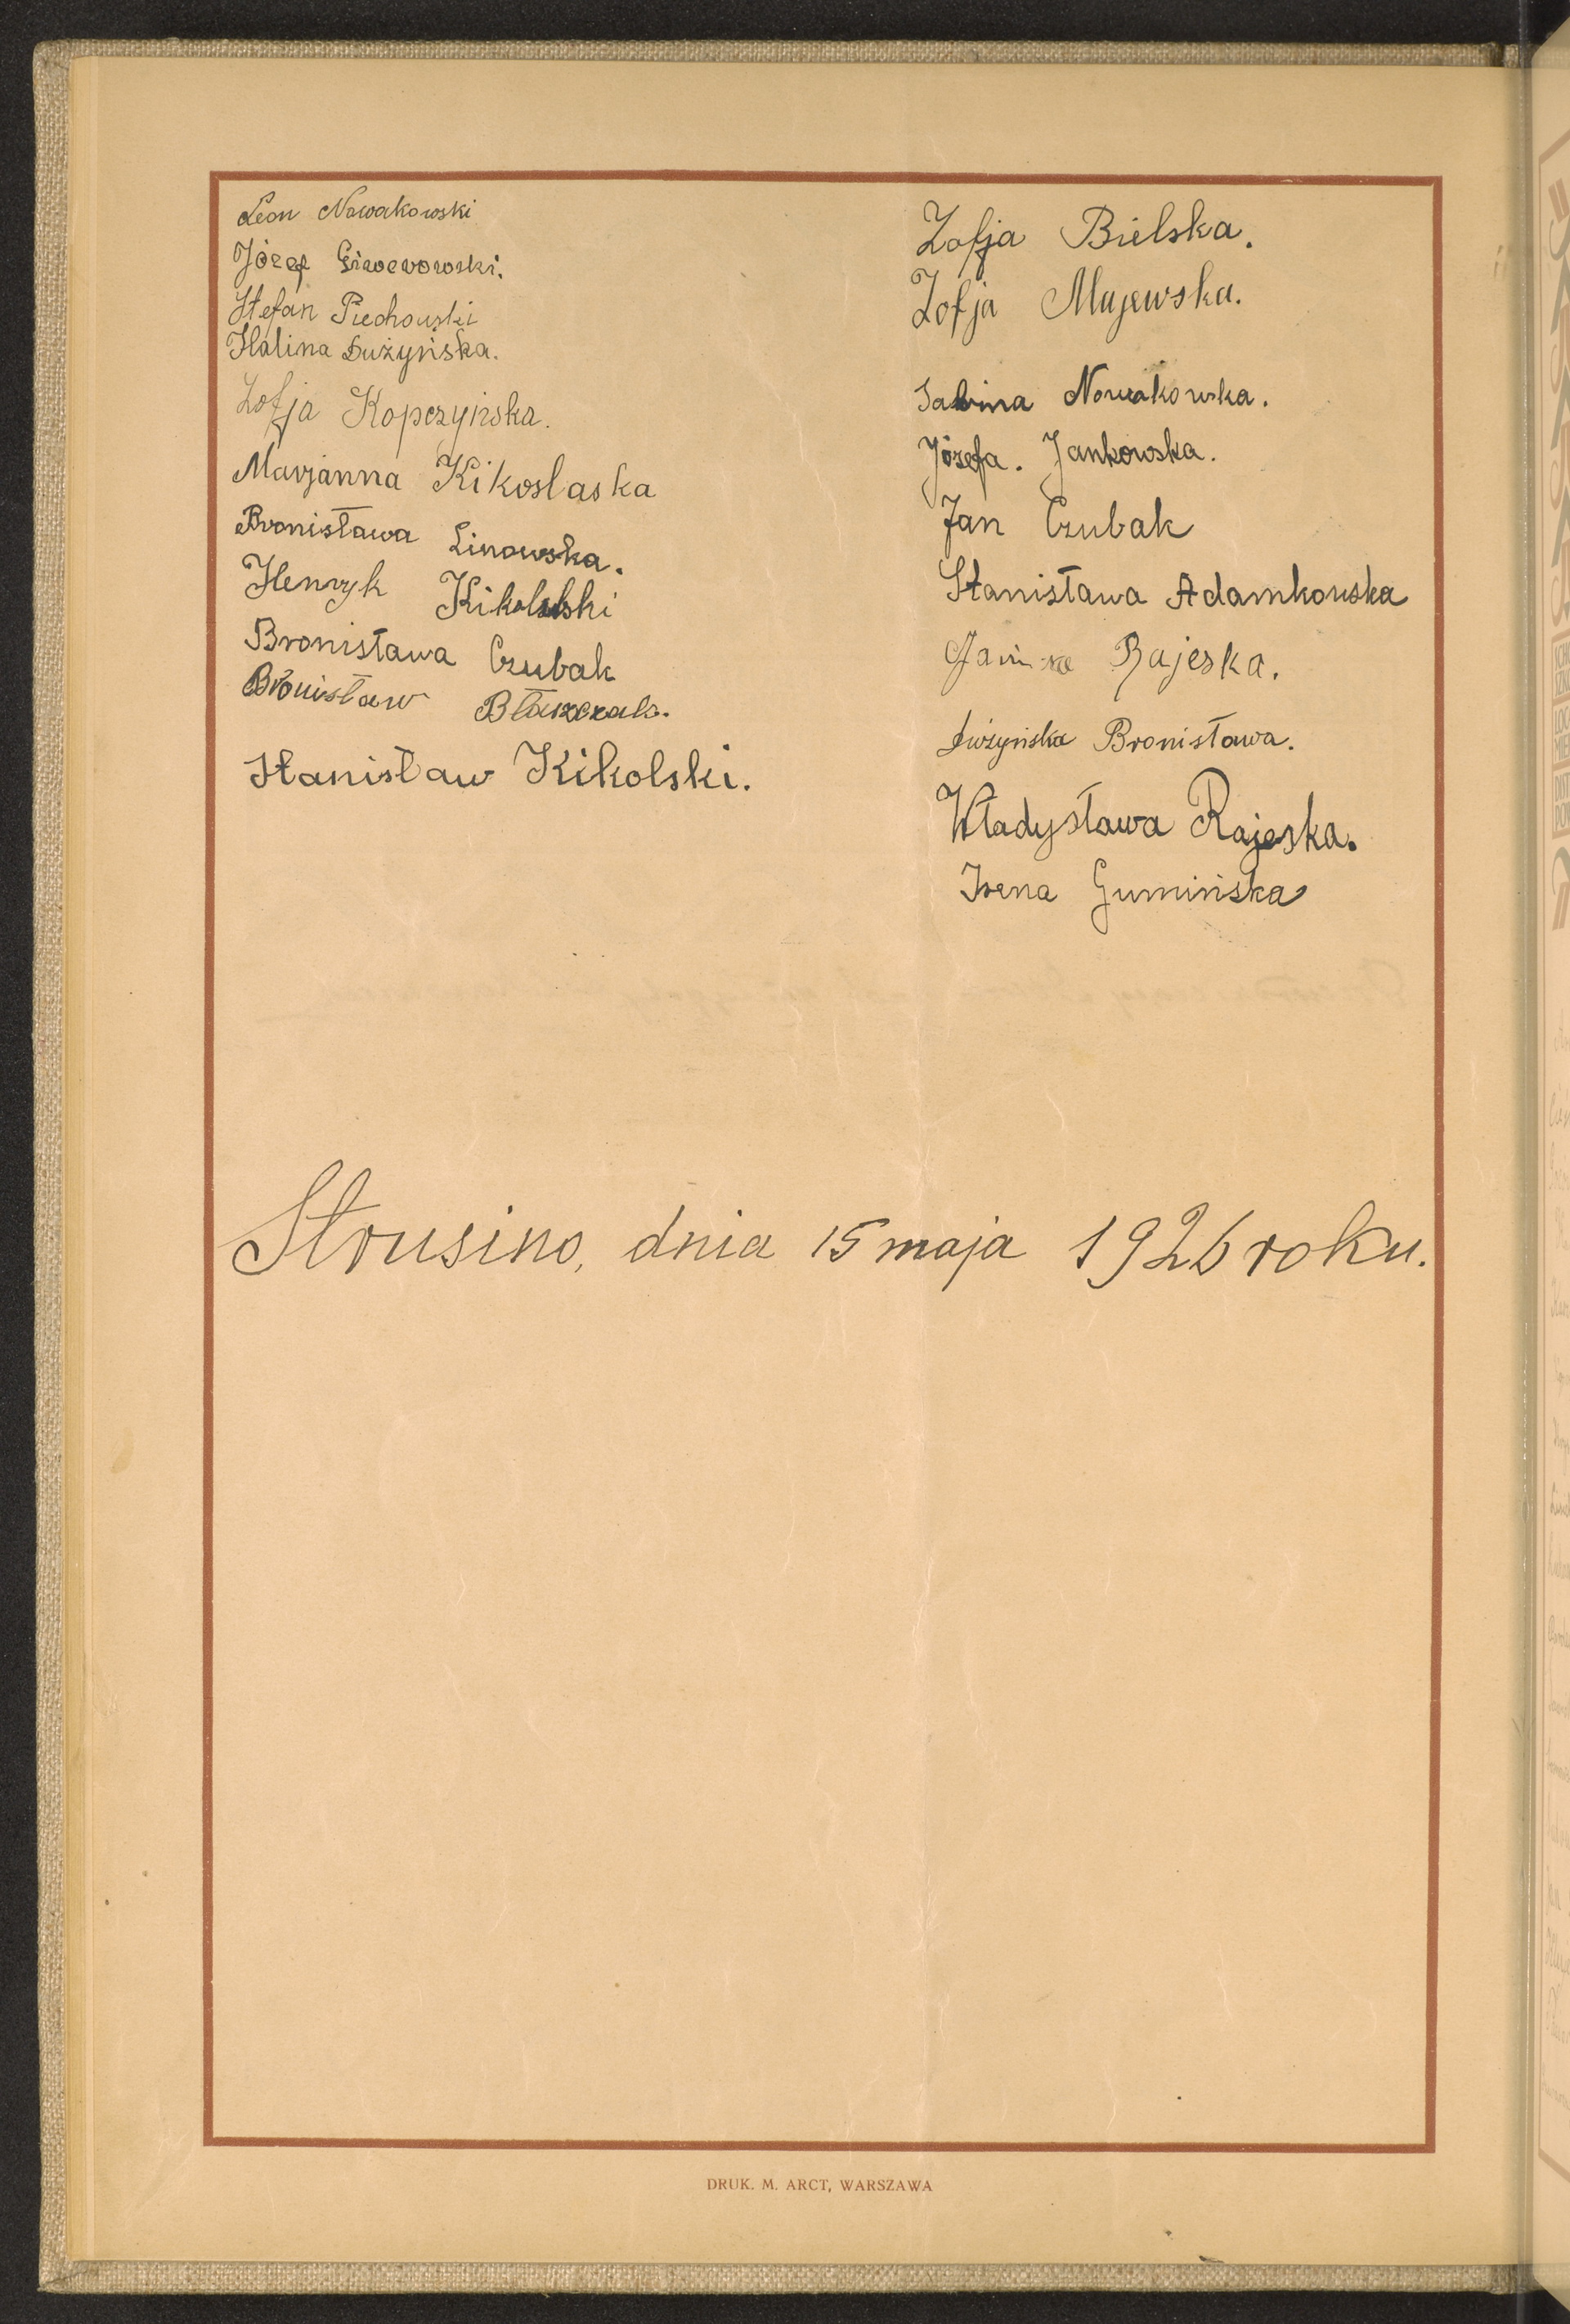 Leon Nowakowski
Józef
Stefan Piechowski
Halina Dużyńska.
Zofja Kopczyńska.
Marjanna Kikoslaska
Bronisława Linowska.
Henryk Kikolski
Bronisława Czubak
Bronisław Błaszczak.
Stanisław Kikolski.
Zofja Bielska.
Zofja Majewska.
Sabina Nowakowska.
Józefa. Jankowska.
Jan Czubak
Stanisława Adamkowska
Janina Rajeska.
Dużyńska Bronisława.
Władysława Rajeska.
Irena Gumińska
Strusino, dnia 15 maja 1926 roku.
DRUK. M. ARCT, WARSZAWA